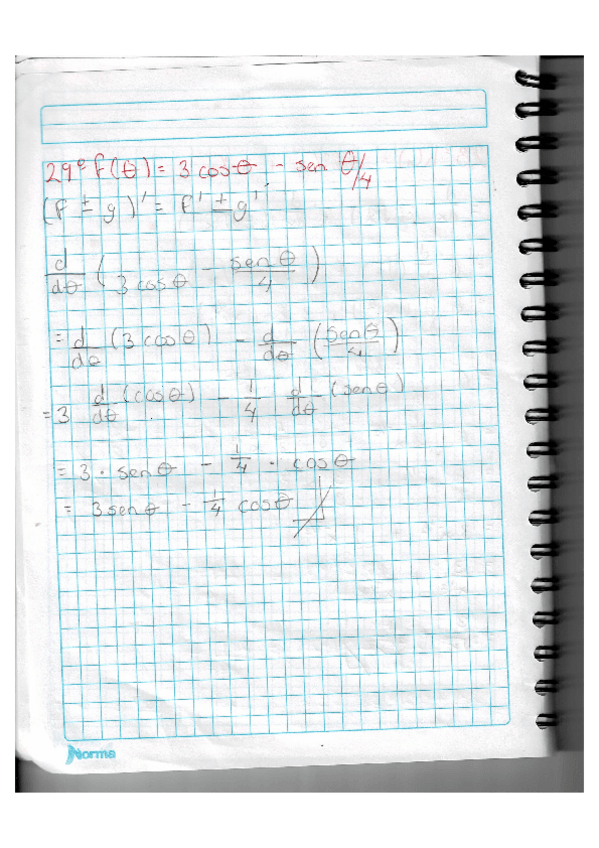 29° f(θ) = 3 cosθ - sen θ/4
(f ± g)' = f' ± g'
d/dθ (3 cosθ - senθ/4)
= d/dθ (3 cosθ) - d/dθ (senθ/4)
= 3 d/dθ (cosθ) - 1/4 d/dθ (senθ)
= 3 · senθ - 1/4 · cosθ
= 3senθ - 1/4 cosθ
Norma